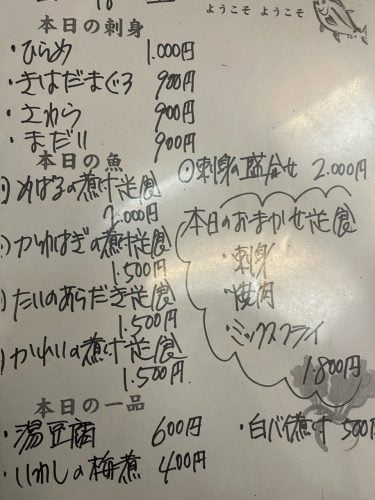 ようこそ ようこそ
本日の刺身
・ひらめ 1.000円
・きはだまぐろ 900円
・さわら 900円
・まだい 900円
○刺身の盛合せ 2.000円
本日の魚
めばるの煮付定食
2.000円
かわはぎの煮付定食
1.500円
たいのあらだき定食
1.500円
かれいの煮付定食
1.500円
本日のおまかせ定食
・刺身
・焼肉
・ミックスフライ
1.800円
本日の一品
・湯豆腐 600円
・いわしの梅煮 400円
・白バイ煮付 500円